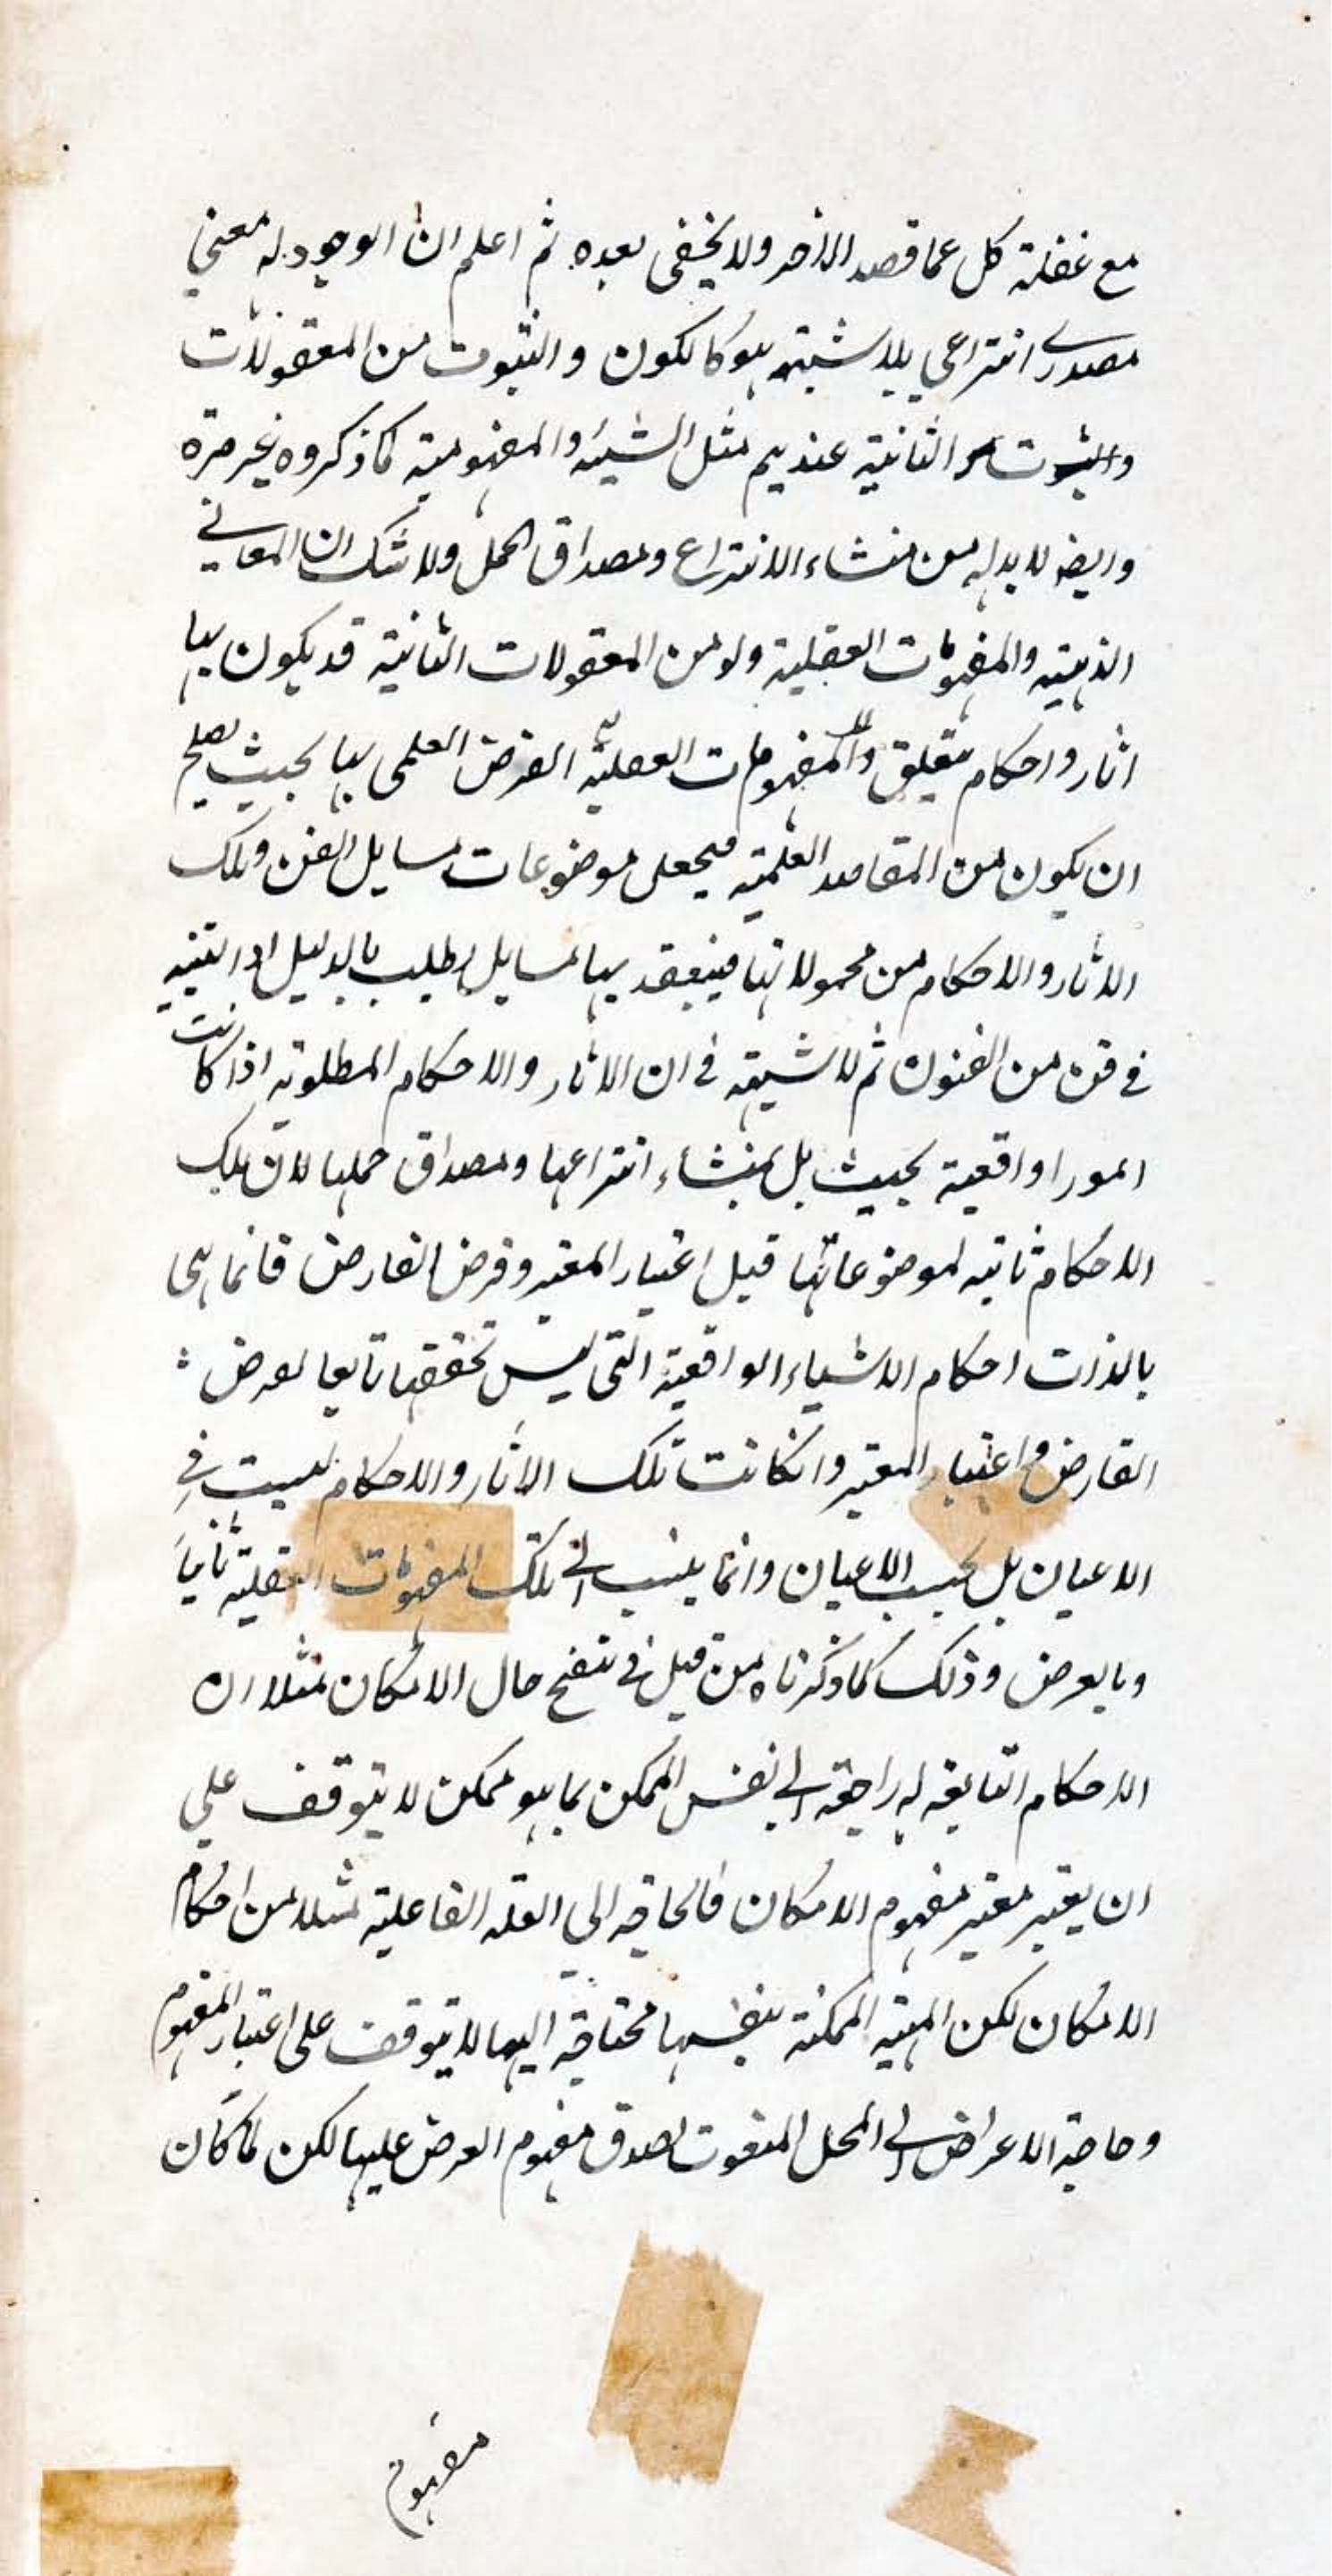 مع غفلة كل عما قصد الاخر ولا يخفى بعده ثم اعلم ان الوجود له معنى
مصدرى انتزاعى بلا شبهة هو كالكون والثبوت من المعقولات
الثانية عندهم مثل الشيئية والمفهومية كما ذكروه غير مرة
وايضا لا بد له من منشاء الانتزاع ومصداق الحمل ولا شك ان المعانى
الذهنية والمفهومات العقلية ولو من المعقولات الثانية قد يكون لها
اثار واحكام متعلق والمفهومات العقلية الغرض العلمى بها بحيث يصلح
ان يكون من المقاصد العلمية فيجعل موضوعات مسايل الفن وتلك
الاثار والاحكام من محمولاتها فينعقد بها مسايل يطلب بالدليل او التنبيه
فى فن من الفنون ثم لا شبهة فى ان الاثار والاحكام المطلوبة اذا كانت
امورا واقعية بحيث بل بمنشاء انتزاعها ومصداق حملها لان تلك
الاحكام ثابتة لموضوعاتها قبل اعتبار المعتبر وفرض الفارض فانما هى
بالذات احكام الاشياء الواقعية التى ليس تحققها تابعا لفرض
الفارض واعتبار المعتبر وانكانت تلك الاثار والاحكام ليست فى
الاعيان بل بحسب الاعيان وانما ينسب الى تلك المفهومات العقلية ثانيا
وبالعرض وذلك كما ذكرناه من قبل فى تنقيح حال الامكان مثلا ان
الاحكام التابعة له راجعة الى نفس الممكن بما هو ممكن لا يتوقف على
ان يعتبر معتبر مفهوم الامكان فالحاجة الى العلة الفاعلية مثلا من احكام
الامكان لكن المهية الممكنة بنفسها محتاجة اليها لا يتوقف على اعتبار المفهوم
وحاجة الاعراض الى المحل المنعوت لصدق مفهوم العرض عليها لكن لما كان
مفهوم